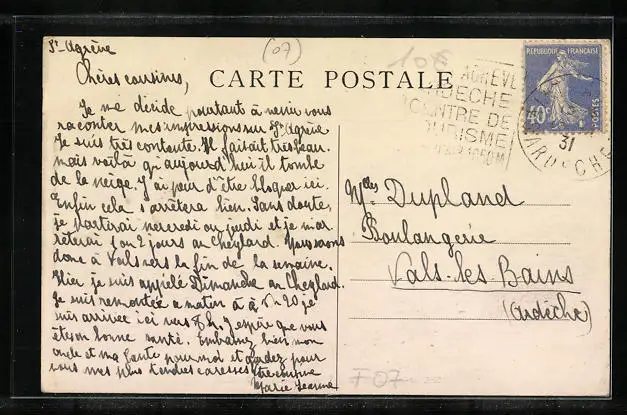 St-Agrève
(07)
10€
Chères cousines,
CARTE POSTALE
Je me décide pourtant à venir vous
raconter mes impressions sur St Agrève
Je suis très contente. Il faisait très beau.
mais voilà qu'aujourd'hui il tombe
de la neige. J'ai peur d'être bloquée ici.
Enfin cela s'arrêtera bien. Sans doute,
je partirai mercredi ou jeudi et je m'ar
rêterai 1 ou 2 jours au Cheylard. Nous serons
donc à Vals vers la fin de la semaine.
Hier je suis appelé Dimanche au Cheylard.
Je suis remontée ce matin à 6h 20 je
suis arrivée ici vers 8h. J'espère que vous
êtes en bonne santé. Embrassez bien mon
oncle et ma tante pour moi et gardez pour
vous mes plus tendres caresses
Votre cousine
Marie Jeanne
AGREVE
ARDECHE
CENTRE DE
TOURISME
1050M
REPUBLIQUE FRANÇAISE
40c
POSTES
31
ARDECHE
Melles Dupland
Boulangerie
Vals-les-Bains
(Ardèche)
F07